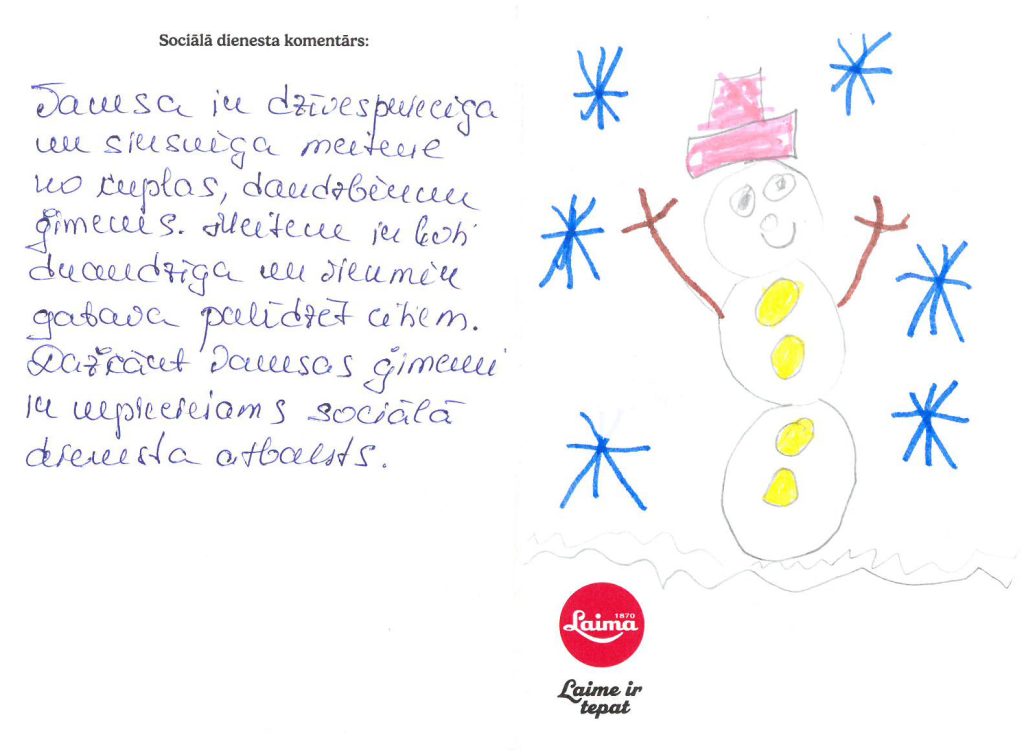 Sociālā dienesta komentārs:
ir dzīvespriecīga
un sirsnīga meitene
no kuplas, daudzbērnu
ģimenes. Meitene ir ļoti
draudzīga un vienmēr
gatava palīdzēt citiem.
Dažkārt ģimenei
ir nepieciešams sociālā
dienesta atbalsts.
1870
Laima
Laime ir
tepat